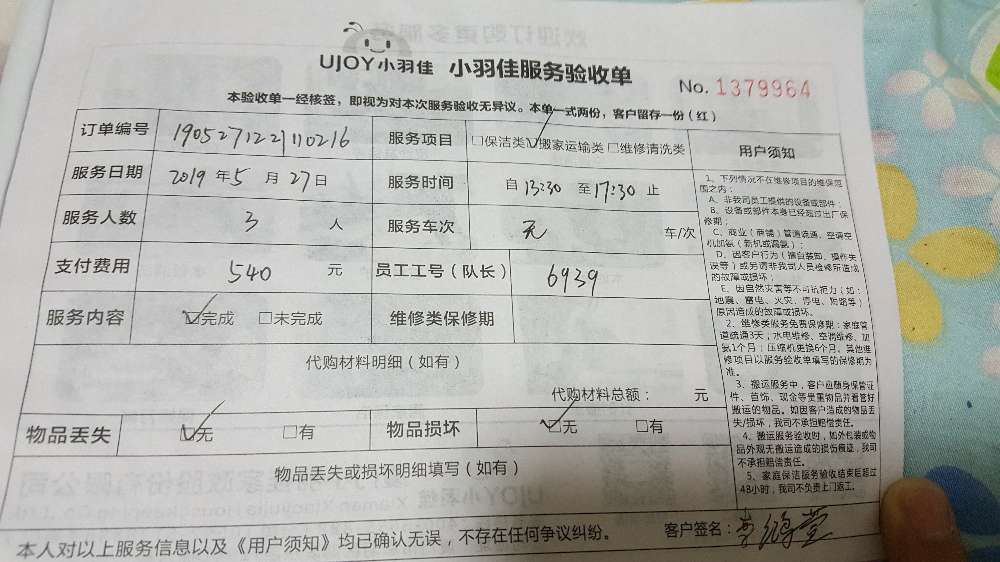 UJOY小羽佳 小羽佳服务验收单
No. 1379964
本验收单一经核签，即视为对本次服务验收无异议。本单一式两份，客户留存一份（红）
订单编号 190527122110216 服务项目 □保洁类 ☑搬家运输类 □维修清洗类
服务日期 2019 年 5 月 27 日 服务时间 自 13:30 至 17:30 止
服务人数 3 人 服务车次 无 车/次
支付费用 540 元 员工工号（队长） 6939
服务内容 ☑完成 □未完成 维修类保修期
代购材料明细（如有）
代购材料总额： 元
物品丢失 ☑无 □有 物品损坏 ☑无 □有
物品丢失或损坏明细填写（如有）
用户须知
1、下列情况不在维修项目的维保范
围之内：
A、非我司员工提供的设备或部件；
B、设备或部件本身已经超过出厂保
修期；
C、商业（商铺）管道疏通、空调空
机加氨（新机或漏氨）；
D、因客户行为（擅自装卸、操作失
误等）或另请非我司人员检修所造成
的故障或损坏；
E、因自然灾害等不可抗拒力（如：
地震、雷电、火灾、停电、短路等）
原因造成的故障或损坏。
2、维修类服务免费保修期：家庭管
道疏通3天；水电维修、空调维修、加
氨1个月；压缩机更换6个月。其他维
修项目以服务验收单填写的保修期为
准。
3、搬运服务中，客户应随身保管证
件、首饰、现金等贵重物品并看管好
搬运的物品。如因客户造成的物品丢
失/损坏，我司不承担赔偿责任。
4、搬运服务验收时，如外包装或物
品外观无搬运造成的损伤痕迹，我司
不承担赔偿责任。
5、家庭保洁服务验收结束后超过
48小时，我司不负责上门返工。
本人对以上服务信息以及《用户须知》均已确认无误，不存在任何争议纠纷。 客户签名：